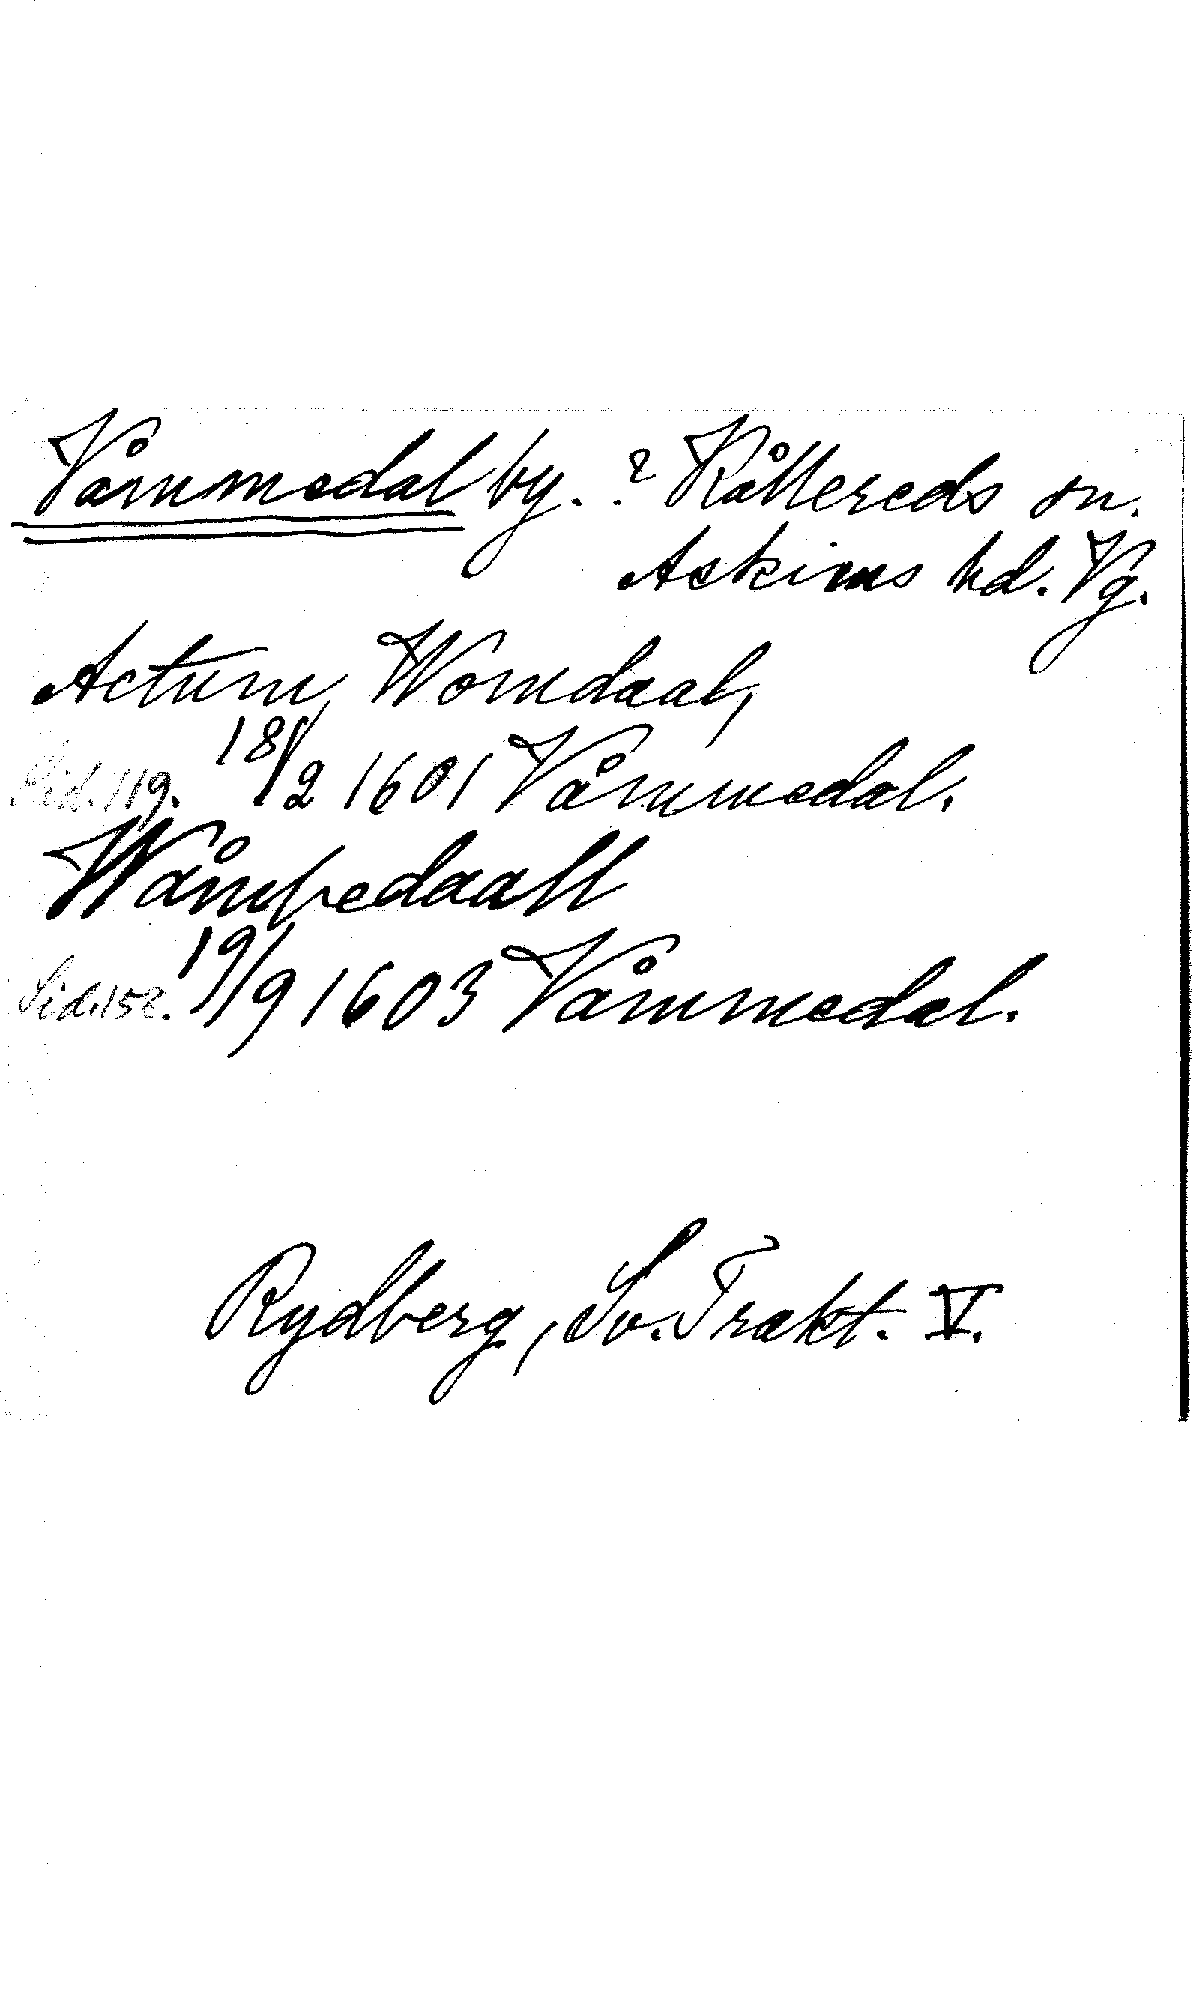 Våmmedal by. ? Kållereds sn.
Askims hd. Vg.
Actum Womdaal,
Sid. 119. 18/2 1601 Våmmedal.
Wåmpedaall
Sid. 152. 19/9 1603 Våmmedal.
Rydberg, Sv. Trakt. V.